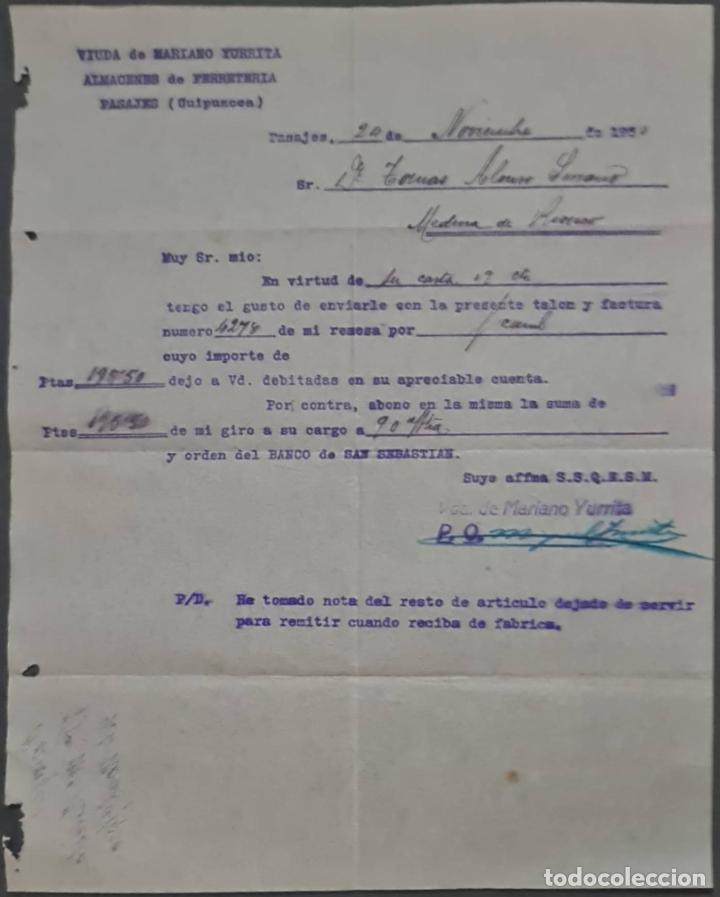 VIUDA de MARIANO YURRITA
ALMACENES de FERRETERIA
PASAJES (Guipuzcoa)
Pasajes, 20 de Noviembre de 19
Sr. Dn Tomas Alonso
Medina de Rioseco
Muy Sr. mio:
En virtud de su carta
tengo el gusto de enviarle con la presente talon y factura
numero 4278 de mi remesa por
cuyo importe de
Ptas. 195'50 dejo a Vd. debitadas en su apreciable cuenta.
Por contra, abono en la misma la suma de
Ptas 195'50 de mi giro a su cargo a 90
y orden del BANCO de SAN SEBASTIAN.
Suyo affma S.S.Q.E.S.M.
Vda. de Mariano Yurrita
P. O.
P/D. He tomado nota del resto de articulo dejado de servir
para remitir cuando reciba de fabrica.
todocoleccion.net